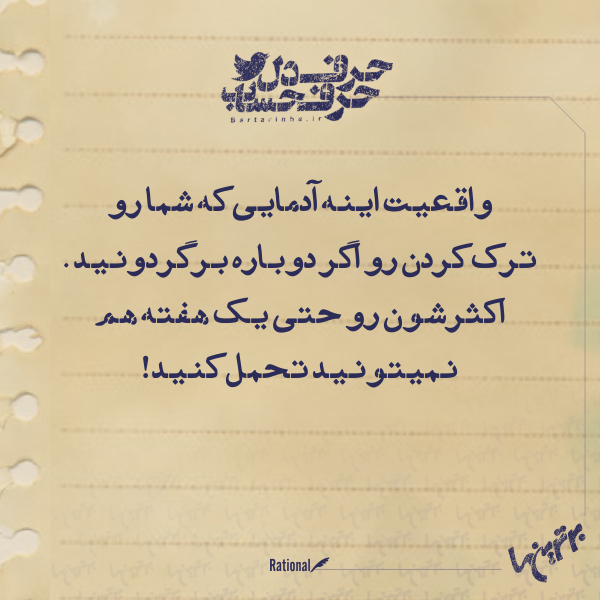 حرف دل
حرف حساب
Bartarinha.ir
واقعیت اینه آدمایی که شما رو
ترک کردن رو اگر دوباره برگردونید.
اکثرشون رو حتی یک هفته هم
نمیتونید تحمل کنید!
برترین‌ها
Rational